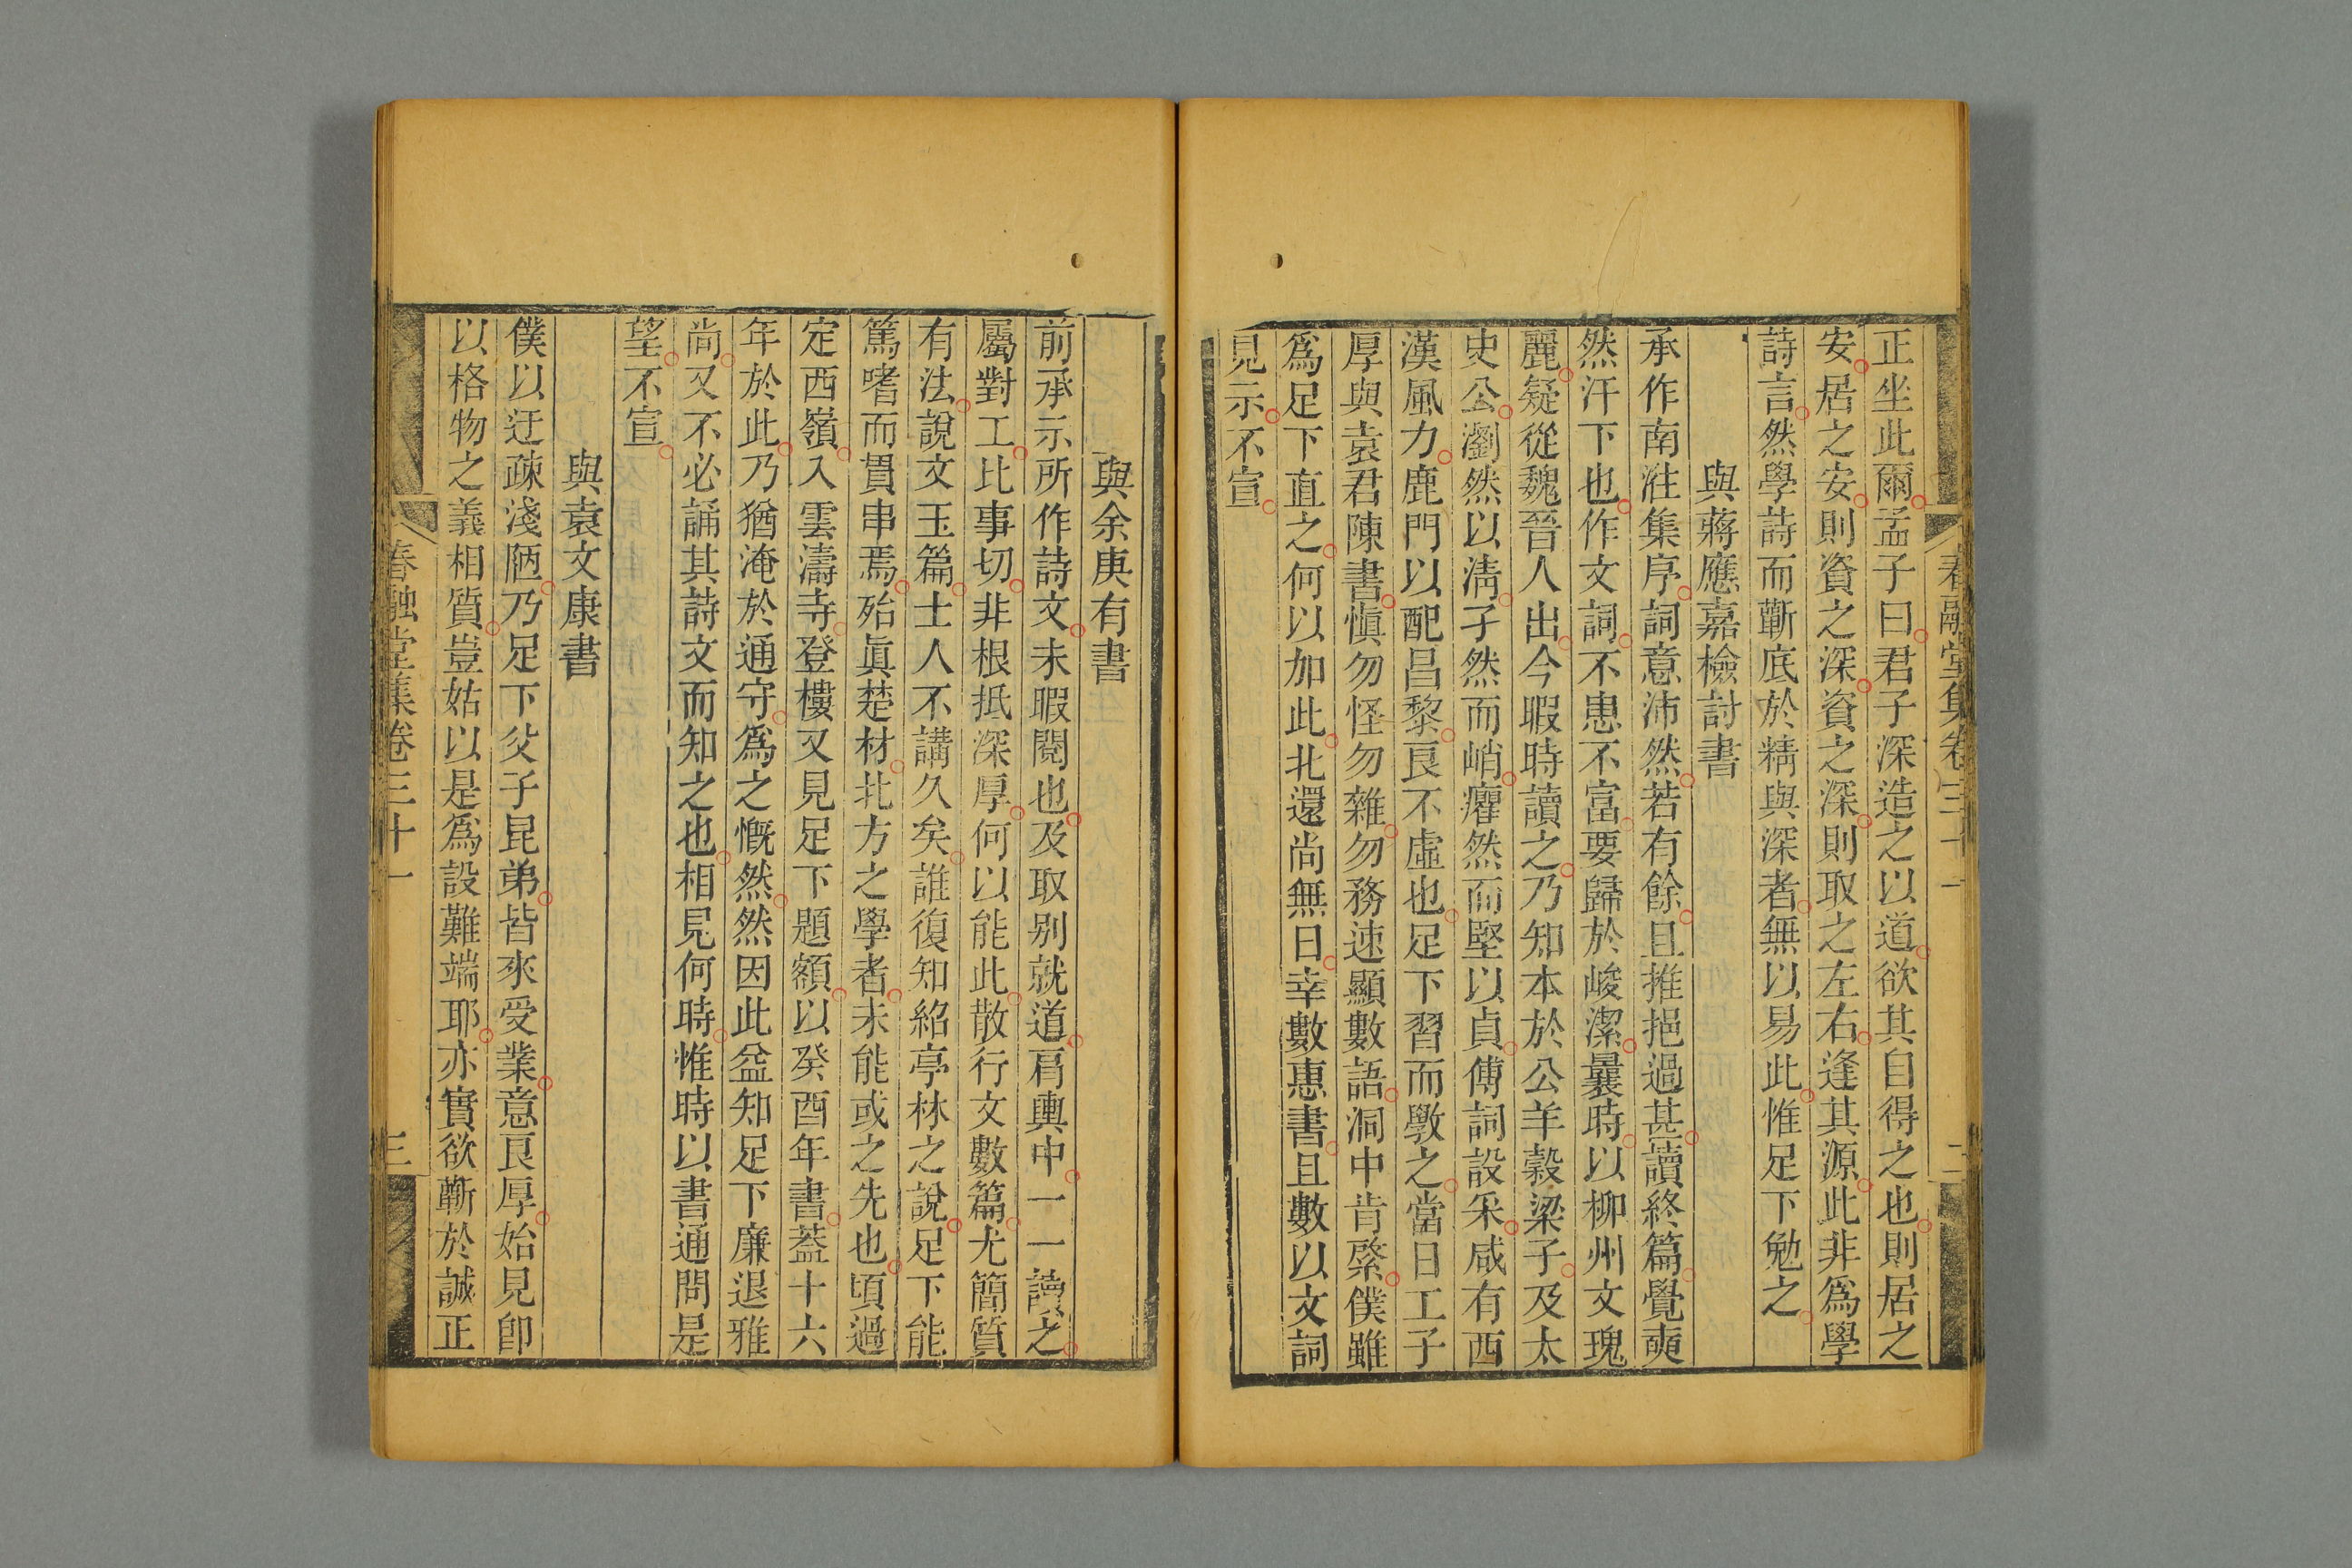 正坐此爾孟子曰君子深造之以道欲其自得之也則居之
安居之安則資之深資之深則取之左右逢其源此非爲學
詩言然學詩而蘄底於精與深者無以易此惟足下勉之
與蔣應嘉檢討書
承作南漄集序詞意沛然若有餘且推挹過甚讀終篇覺奭
然汗下也作文詞不患不富要歸於峻潔曩時以柳州文瑰
麗疑從魏晉人出今暇時讀之乃知本於公羊穀梁子及太
史公瀏然以淸孑然而峭癯然而堅以貞傅詞設采咸有西
漢風力鹿門以配昌黎良不虛也足下習而斆之當日工子
厚與袁君陳書愼勿怪勿雜勿務速顯數語洞中肯綮僕雖
爲足下直之何以加此北還尚無日幸數惠書且數以文詞
見示不宣
春融堂集卷三十一
二
與余庚有書
前承示所作詩文未暇閱也及取别就道肩輿中一一讀之
屬對工比事切非根抵深厚何以能此散行文數篇尤簡質
有法說文玉篇士人不講久矣誰復知紹亭林之說足下能
篤嗜而貫串焉殆眞楚材北方之學者未能或之先也頃過
定西嶺入雲濤寺登樓又見足下題額以癸酉年書蓋十六
年於此乃猶淹於通守爲之慨然然因此益知足下廉退雅
尚又不必誦其詩文而知之也相見何時惟時以書通問是
望不宣
與袁文康書
僕以迂疎淺陋乃足下父子昆弟皆來受業意良厚始見卽
以格物之義相質豈姑以是爲設難端耶亦實欲蘄於誠正
春融堂集卷三十一
三